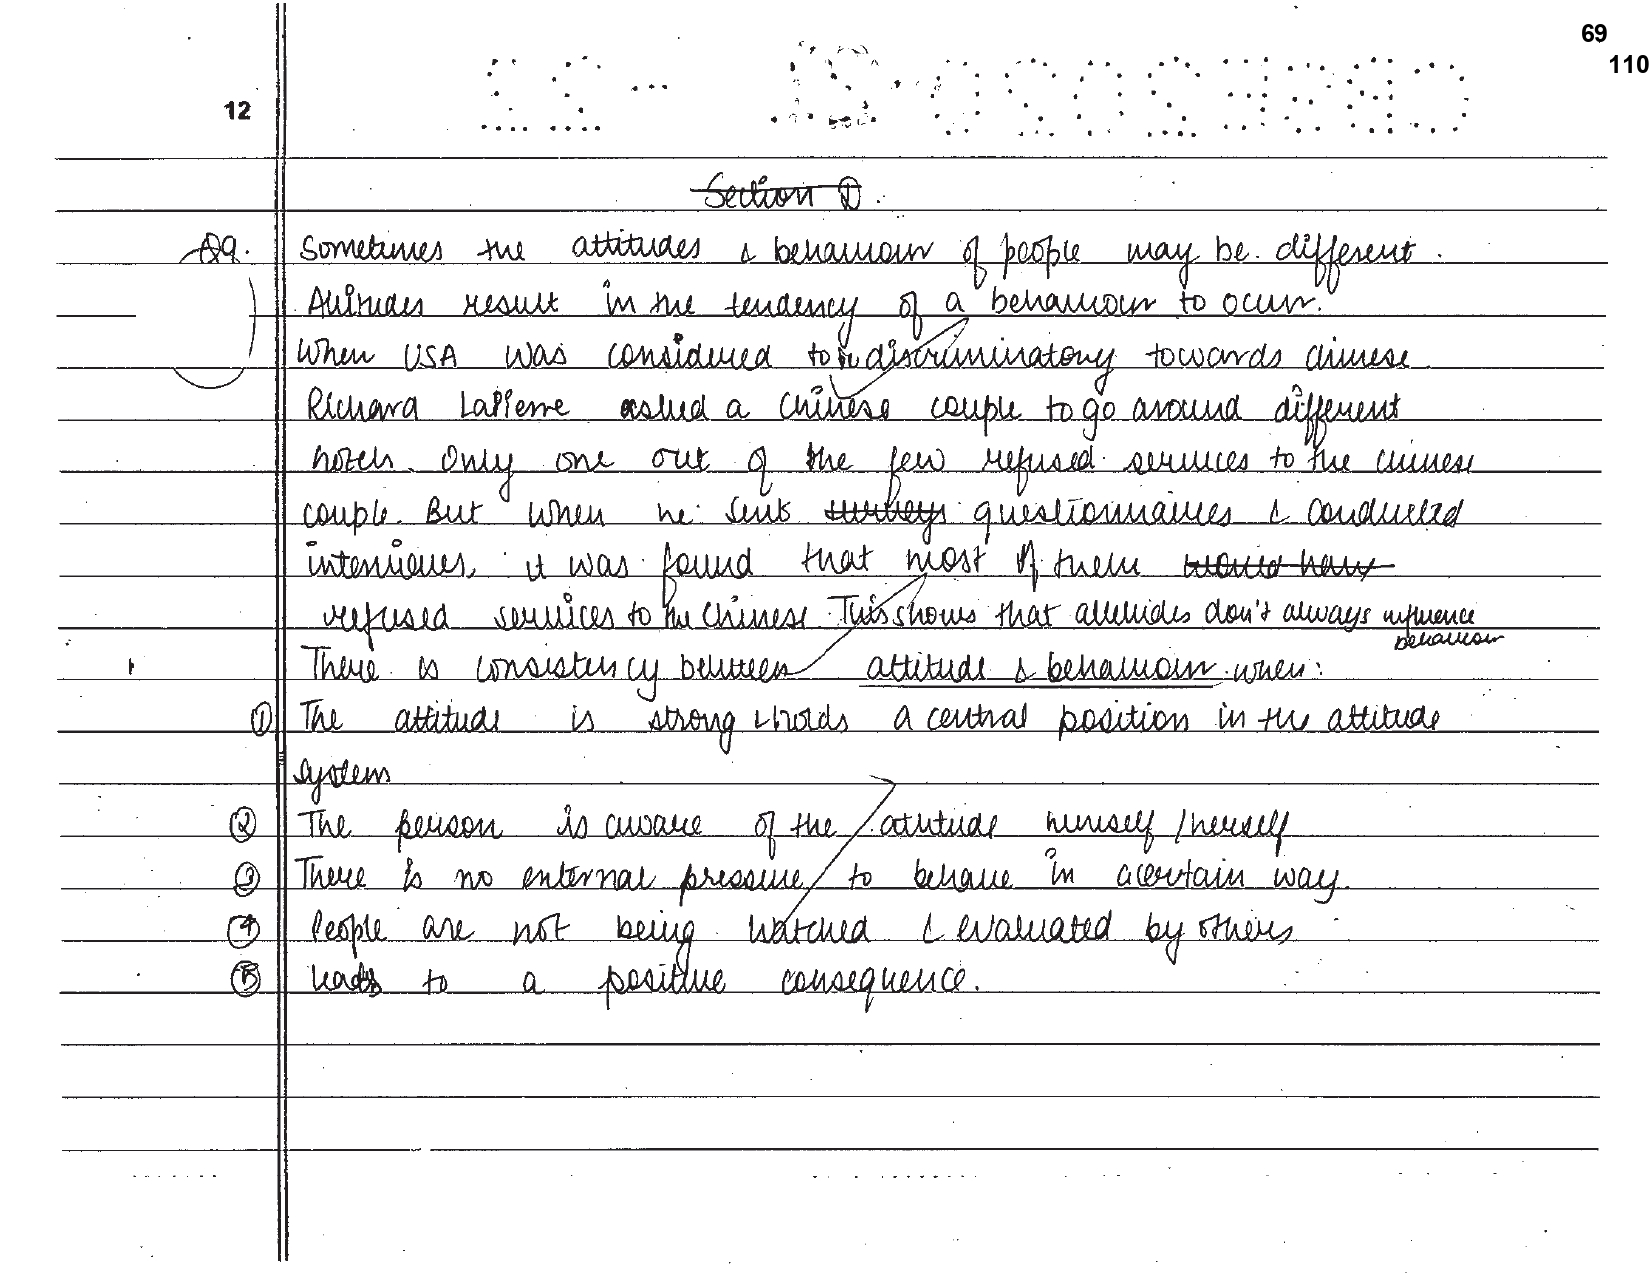 69
110
12
CBSE2020-21 - 22
Section D.
Q9. Sometimes the attitudes & behaviour of people may be different.
Attitudes result in the tendency of a behaviour to occur.
When USA was considered to be discriminatory towards chinese
Richard LaPierre asked a Chinese couple to go around different
hotels. Only one out of the few refused services to the chinese
couple. But when he sent surveys questionnaires & conducted
interviews, it was found that most of them would have
refused services to the Chinese. This shows that attitudes don't always influence
behaviour
There is consistency between attitude & behaviour when:
① The attitude is strong & holds a central position in the attitude
system
② The person is aware of the attitude himself / herself
③ There is no external pressure to behave in a certain way.
④ People are not being watched & evaluated by others
⑤ leads to a positive consequence.